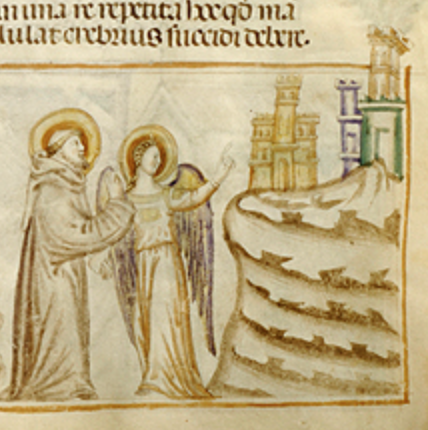 una re repetita hec qđ ma
ulat crebrius succidi